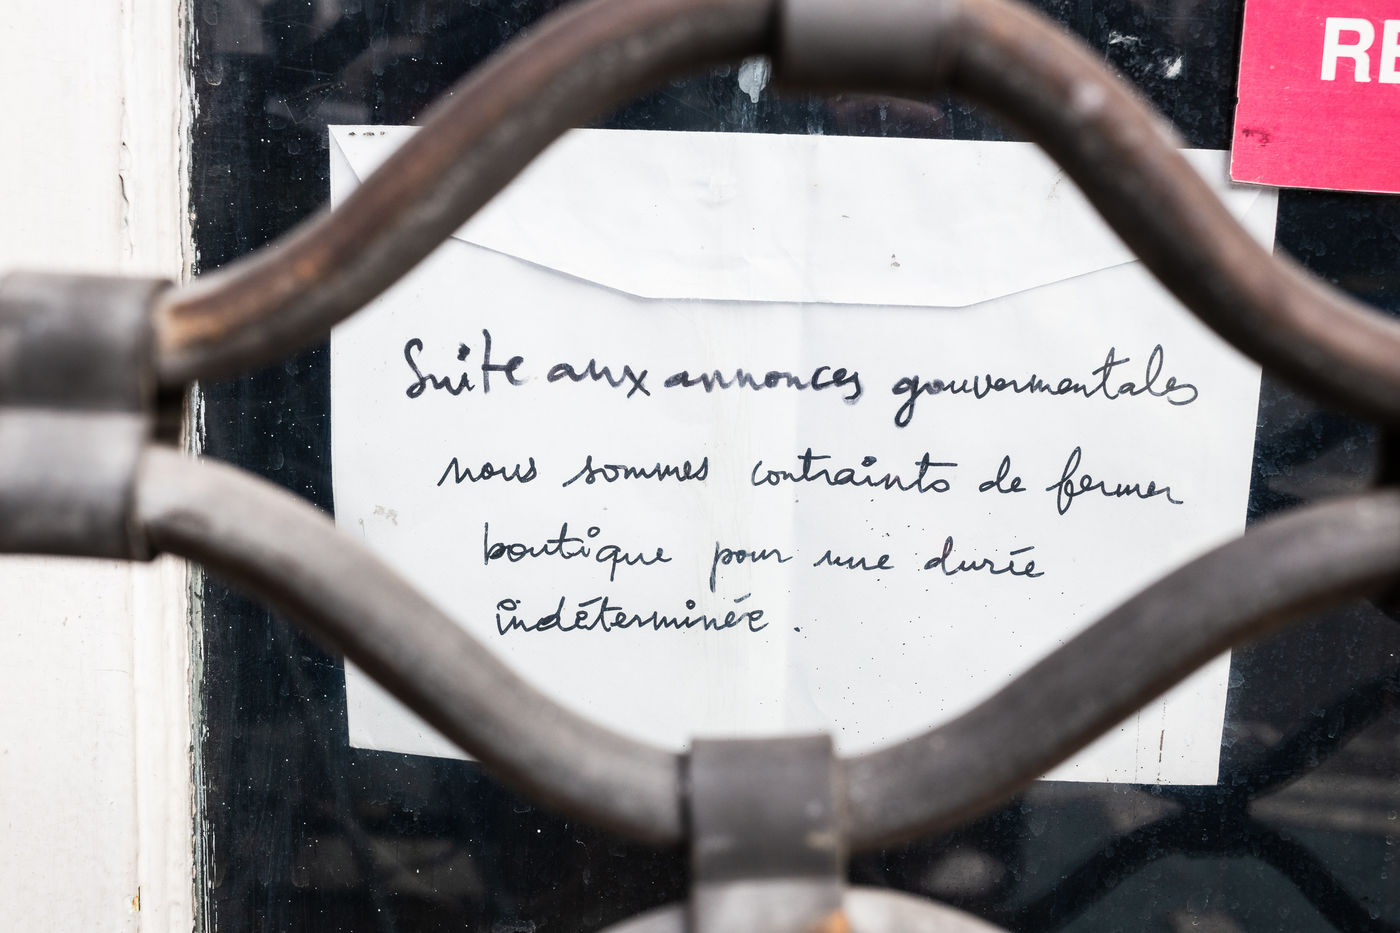 RE
Suite aux annonces gouvernementales
nous sommes contraints de fermer
boutique pour une durée
indéterminée.